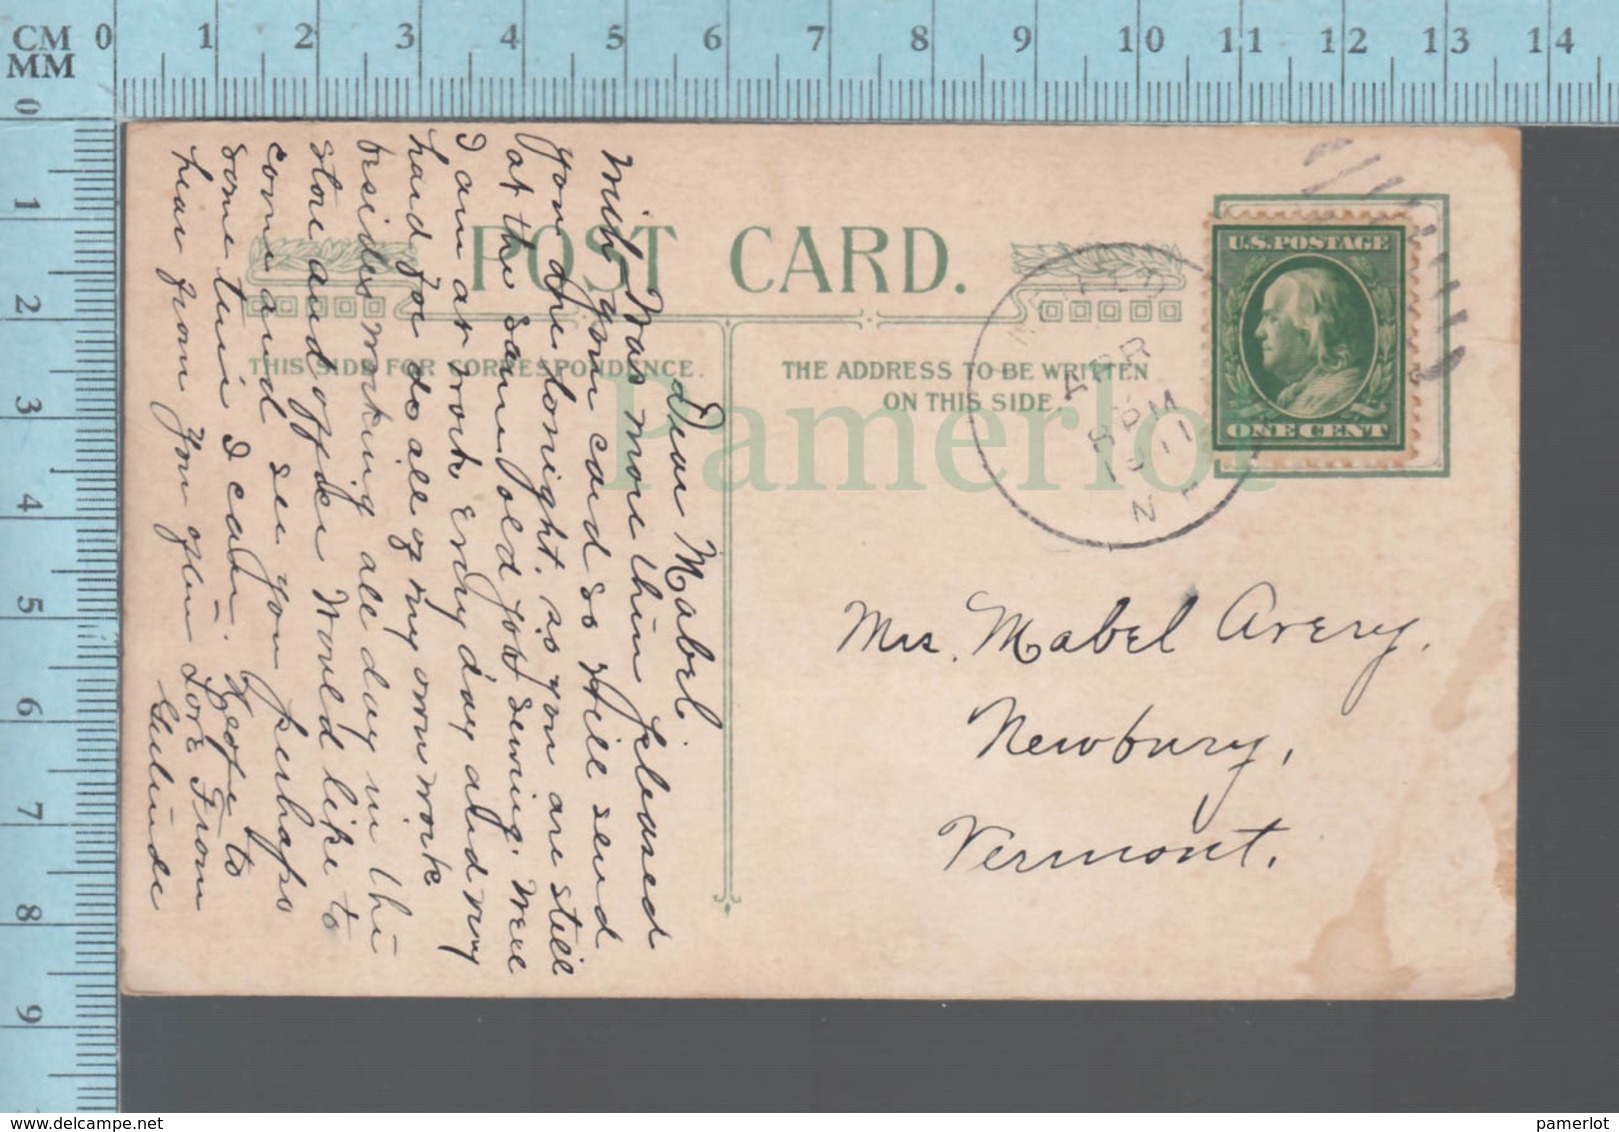 CM 0 1 2 3 4 5 6 7 8 9 10 11 12 13 14
MM
0 1 2 3 4 5 6 7 8 9
POST CARD.
THIS SIDE FOR CORRESPONDENCE.
THE ADDRESS TO BE WRITTEN
ON THIS SIDE.
Pamerlot
U.S. POSTAGE
ONE CENT
APR
8 PM
1911
N.H.
Dear Mabel.
Was more than pleased
with your card so still send
you one tonight. so you are still
at the same old job sewing. Well
I am at work Every day and my
hand for do all of my own work
besides working all day in the
store and office Would like to
come and see you perhaps
some time I can. Hope to
hear from you often Love From
Mrs. Mabel Avery.
Newbury,
Vermont.
https://www.delcampe.net
pamerlot